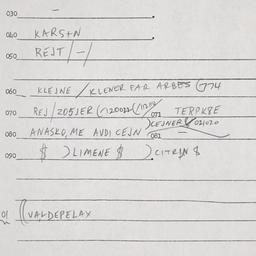 030 —
040 KARSTN
050 REJT/-/
060 KLEJNE / KLENER FAR ARBES G774
070 REJ/ZOSJER 071 TERPKBE
)KEJNER 021020
080 ANASKO, ME AVDI CEJN 081 —
090 $ )LIMENE $ )CITRIN $
01 VALDEPELAX